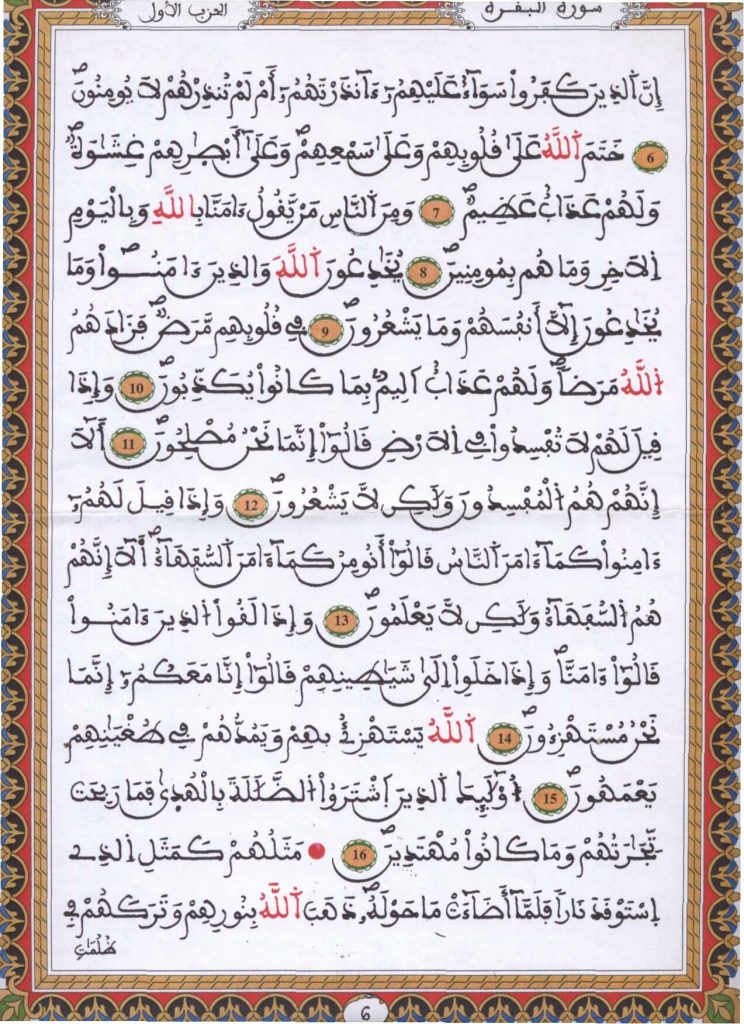 سورة البقرة
الحزب الأول
إِنَّ اَ۬لذِينَ كَفَرُواْ سَوَآءٌ عَلَيْهِمُۥٓ ءَآنذَرْتَهُمُۥٓ أَمْ لَمْ تُنذِرْهُمْ لَا يُومِنُونَۖ
6 خَتَمَ اَ۬للَّهُ عَلَىٰ قُلُوبِهِمْ وَعَلَىٰ سَمْعِهِمْۖ وَعَلَىٰٓ أَبْصٰ۪رِهِمْ غِشَٰوَةٞۖ
وَلَهُمْ عَذَابٌ عَظِيمٞۖ 7 وَمِنَ اَ۬لنَّاسِ مَنْ يَّقُولُ ءَامَنَّا بِاللَّهِ وَبِالْيَوْمِ
اِ۬لَاخِرِ وَمَا هُم بِمُومِنِينَۖ 8 يُخَٰدِعُونَ اَ۬للَّهَ وَالذِينَ ءَامَنُواْ وَمَا
يُخَٰدِعُونَ إِلَّآ أَنفُسَهُمْ وَمَا يَشْعُرُونَۖ 9 فِے قُلُوبِهِم مَّرَضٞۖ فَزَادَهُمُ
اُ۬للَّهُ مَرَضاٗۖ وَلَهُمْ عَذَابٌ اَلِيمُۢ بِمَا كَانُواْ يُكَذِّبُونَۖ 10 وَإِذَا
قِيلَ لَهُمْ لَا تُفْسِدُواْ فِے اِ۬لَارْضِ قَالُوٓاْ إِنَّمَا نَحْنُ مُصْلِحُونَۖ 11 أَلَآ
إِنَّهُمْ هُمُ اُ۬لْمُفْسِدُونَ وَلَٰكِن لَّا يَشْعُرُونَۖ 12 وَإِذَا قِيلَ لَهُمُۥٓ
ءَامِنُواْ كَمَآ ءَامَنَ اَ۬لنَّاسُ قَالُوٓاْ أَنُومِنُ كَمَآ ءَامَنَ اَ۬لسُّفَهَآءُۖ أَلَآ إِنَّهُمْ
هُمُ اُ۬لسُّفَهَآءُ وَلَٰكِن لَّا يَعْلَمُونَۖ 13 وَإِذَا لَقُواْ اُ۬لذِينَ ءَامَنُواْ
قَالُوٓاْ ءَامَنَّاۖ وَإِذَا خَلَوِاْ اِلَىٰ شَيَٰطِينِهِمْ قَالُوٓاْ إِنَّا مَعَكُمُۥٓ إِنَّمَا
نَحْنُ مُسْتَهْزِءُونَۖ 14 اَ۬للَّهُ يَسْتَهْزِئُ بِهِمْ وَيَمُدُّهُمْ فِے طُغْيَٰنِهِمْ
يَعْمَهُونَۖ 15 أُوْلَٰٓئِكَ اَ۬لذِينَ اَ۪شْتَرَوُاْ اُ۬لضَّلَٰلَةَ بِالْهُد۪ىٰ فَمَا رَبِحَت
تِّجَٰرَتُهُمْ وَمَا كَانُواْ مُهْتَدِينَۖ 16 مَثَلُهُمْ كَمَثَلِ اِ۬لذِے
اِ۪سْتَوْقَدَ نَاراٗ فَلَمَّآ أَضَآءَتْ مَا حَوْلَهُۥ ذَهَبَ اَ۬للَّهُ بِنُورِهِمْ وَتَرَكَهُمْ فِے
ظُلُمَٰتٖ
6